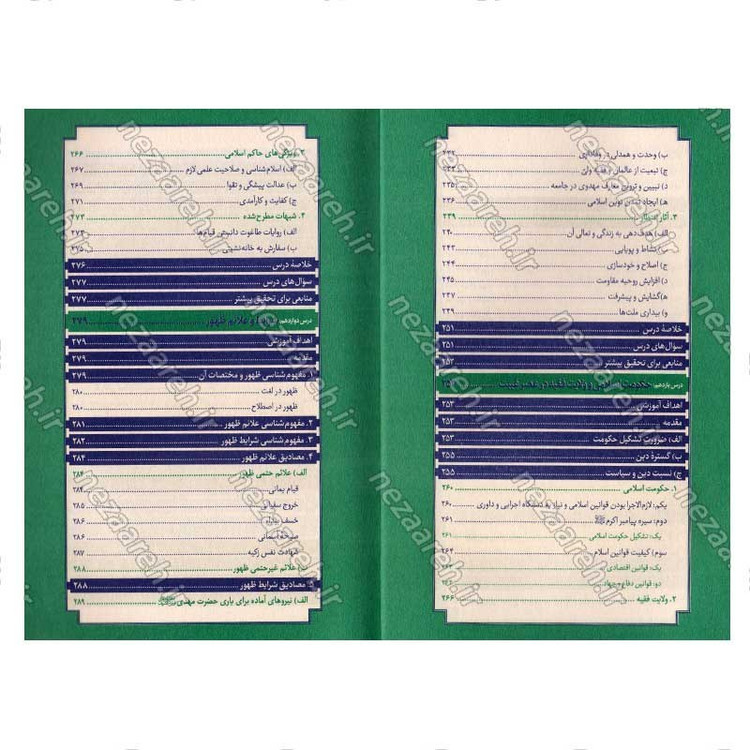 ب) وحدت و همدلی ... ۲۳۲
ج) تبعیت از عالمان
د) تبیین و ترویج معارف مهدوی در جامعه ... ۲۳۵
هـ) ایجاد تمدن نوین اسلامی ... ۲۳۶
۳. آثار انتظار ... ۲۳۹
الف) هدف‌دهی به زندگی و تعالی آن ... ۲۴۰
ب) نشاط و پویایی ... ۲۴۲
ج) اصلاح و خودسازی ... ۲۴۴
د) افزایش روحیه مقاومت ... ۲۴۵
هـ) گشایش و پیشرفت ... ۲۴۷
و) بیداری ملت‌ها ... ۲۴۹
خلاصهٔ درس ... ۲۵۱
سؤال‌های درس ... ۲۵۱
منابعی برای تحقیق بیشتر ... ۲۵۲
درس یازدهم: حکومت اسلامی و ولایت فقیه در عصر غیبت
اهداف آموزشی ... ۲۵۳
مقدمه ... ۲۵۳
الف) ضرورت تشکیل حکومت ... ۲۵۳
ب) گسترهٔ دین ... ۲۵۵
ج) نسبت دین و سیاست ... ۲۵۵
۱. حکومت اسلامی ... ۲۶۰
یکم: لازم‌الاجرا بودن قوانین اسلامی و نیاز به دستگاه اجرایی و داوری ... ۲۶۰
دوم: سیره پیامبر اکرم ﷺ ... ۲۶۱
یک: تشکیل حکومت اسلامی ... ۲۶۱
سوم) کیفیت قوانین اسلام ... ۲۶۴
یک: قوانین اقتصادی
دو: قوانین دفاع و جهاد
۲. ولایت فقیه ... ۲۶۶
۳. ویژگی‌های حاکم اسلامی ... ۲۶۶
الف) اسلام‌شناسی و صلاحیت علمی لازم ... ۲۶۷
ب) عدالت پیشگی و تقوا ... ۲۶۹
ج) کفایت و کارآمدی ... ۲۷۱
۴. شبهات مطرح‌شده ... ۲۷۲
الف) روایات طاغوت دانستن قیام‌ها ... ۲۷۲
ب) سفارش به خانه‌نشینی ... ۲۷۵
خلاصهٔ درس ... ۲۷۶
سؤال‌های درس ... ۲۷۷
منابعی برای تحقیق بیشتر ... ۲۷۷
درس دوازدهم: علائم ظهور ... ۲۷۹
اهداف آموزشی ... ۲۷۹
مقدمه ... ۲۷۹
۱. مفهوم‌شناسی ظهور و مختصات آن ... ۲۷۹
ظهور در لغت ... ۲۸۰
ظهور در اصطلاح ... ۲۸۰
۲. مفهوم‌شناسی علائم ظهور ... ۲۸۱
۳. مفهوم‌شناسی شرایط ظهور ... ۲۸۲
۴. مصادیق علائم ظهور ... ۲۸۴
الف) علائم حتمی ظهور ... ۲۸۴
قیام یمانی ... ۲۸۴
خروج سفیانی ... ۲۸۵
خسف بیداء ... ۲۸۶
صیحه آسمانی ... ۲۸۶
شهادت نفس زکیه ... ۲۸۷
ب) علائم غیرحتمی ظهور ... ۲۸۸
۵. مصادیق شرایط ظهور ... ۲۸۸
الف) نیروهای آماده برای یاری حضرت مهدی ... ۲۸۹
nezaareh.ir